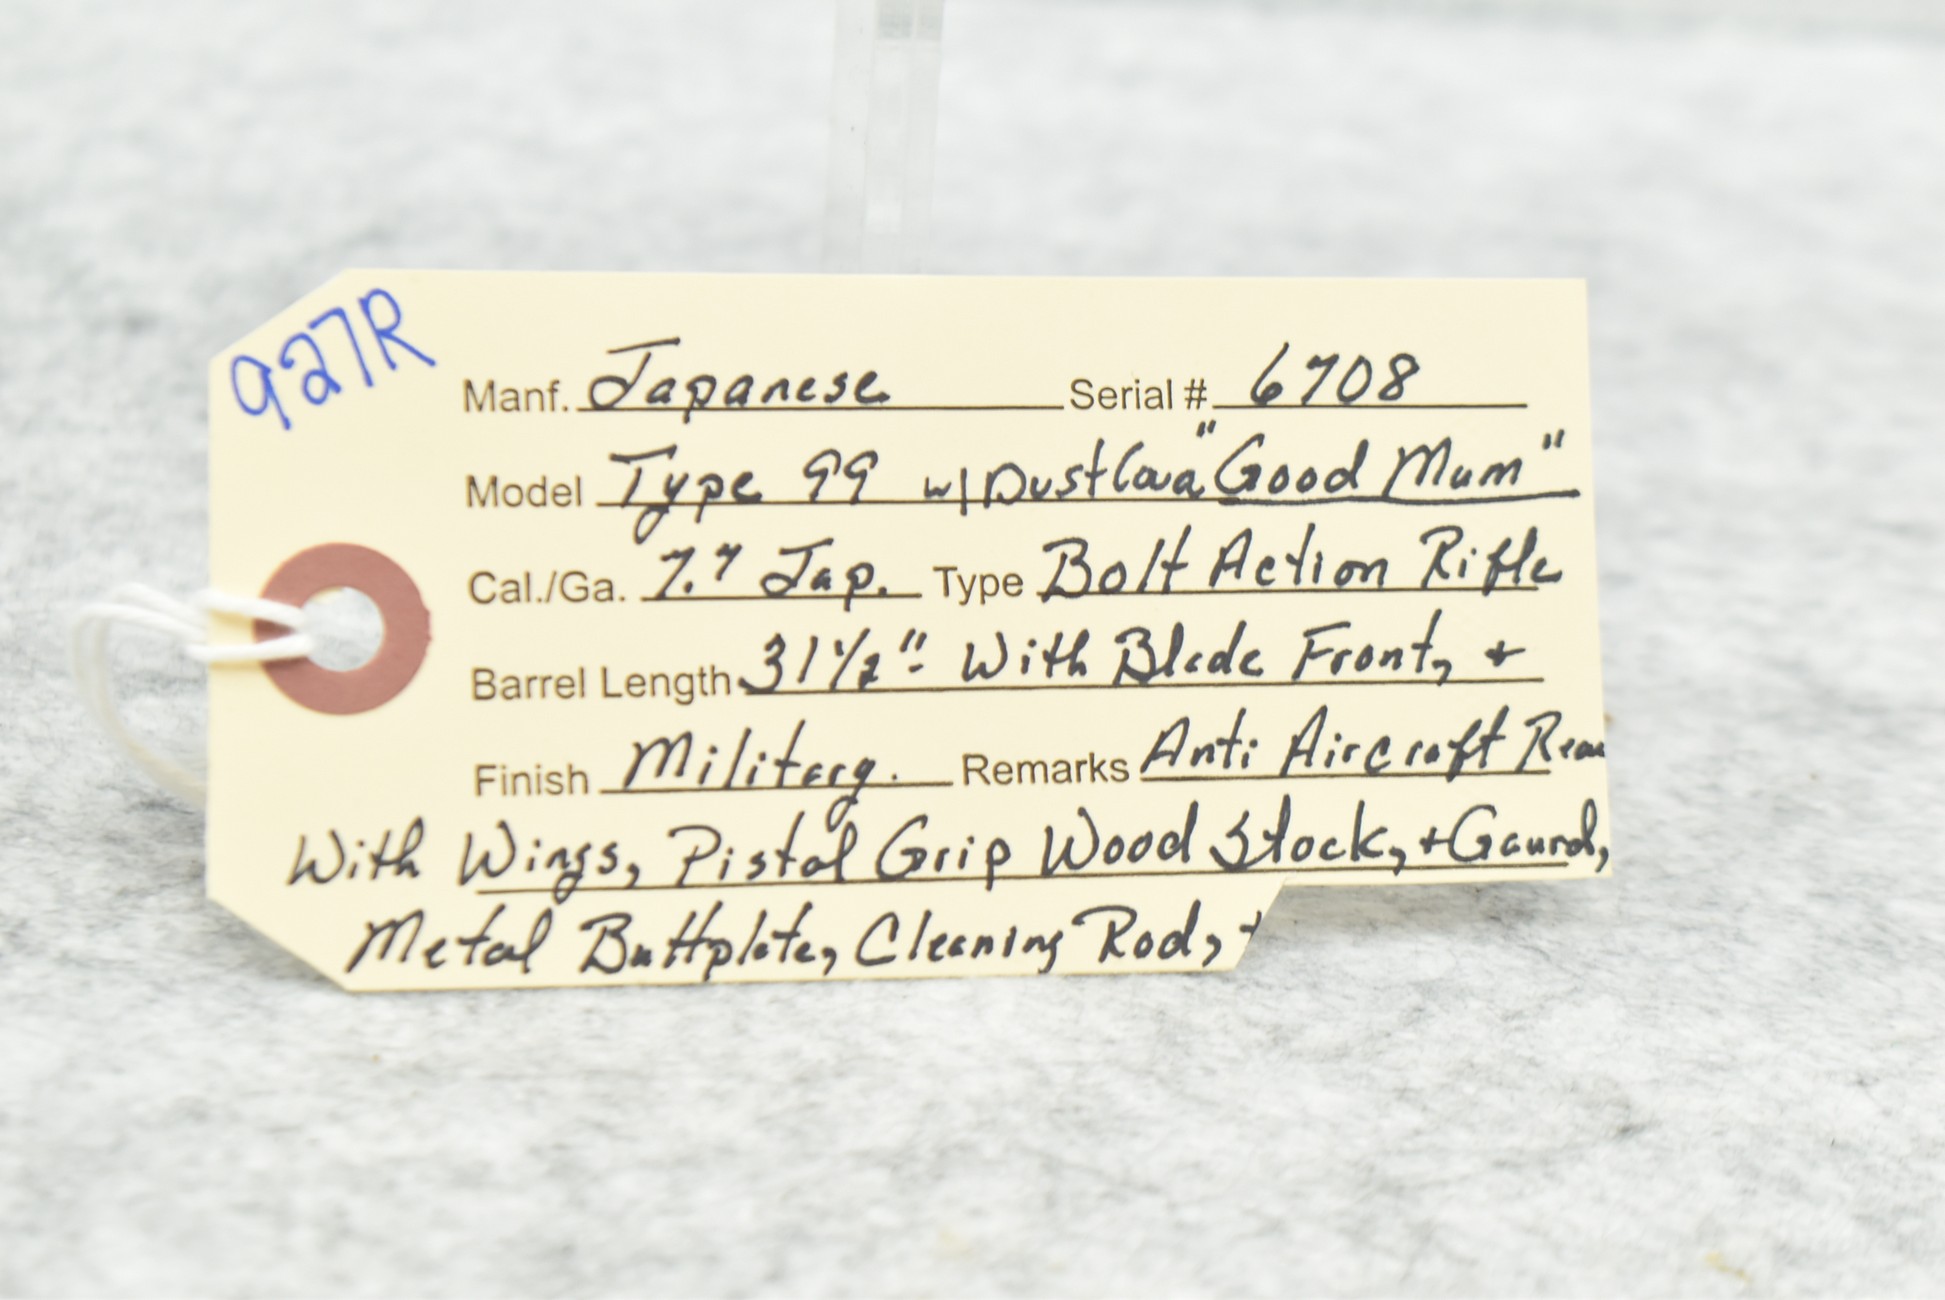 927R
Manf. Japanese Serial # 6708
Model Type 99 w/ Dust Cover "Good Mum"
Cal./Ga. 7.7 Jap. Type Bolt Action Rifle
Barrel Length 31 1/2" With Blade Front, +
Finish Military. Remarks Anti Aircraft Rear
With Wings, Pistol Grip Wood Stock, + Gaurd,
Metal Buttplate, Cleaning Rod, +